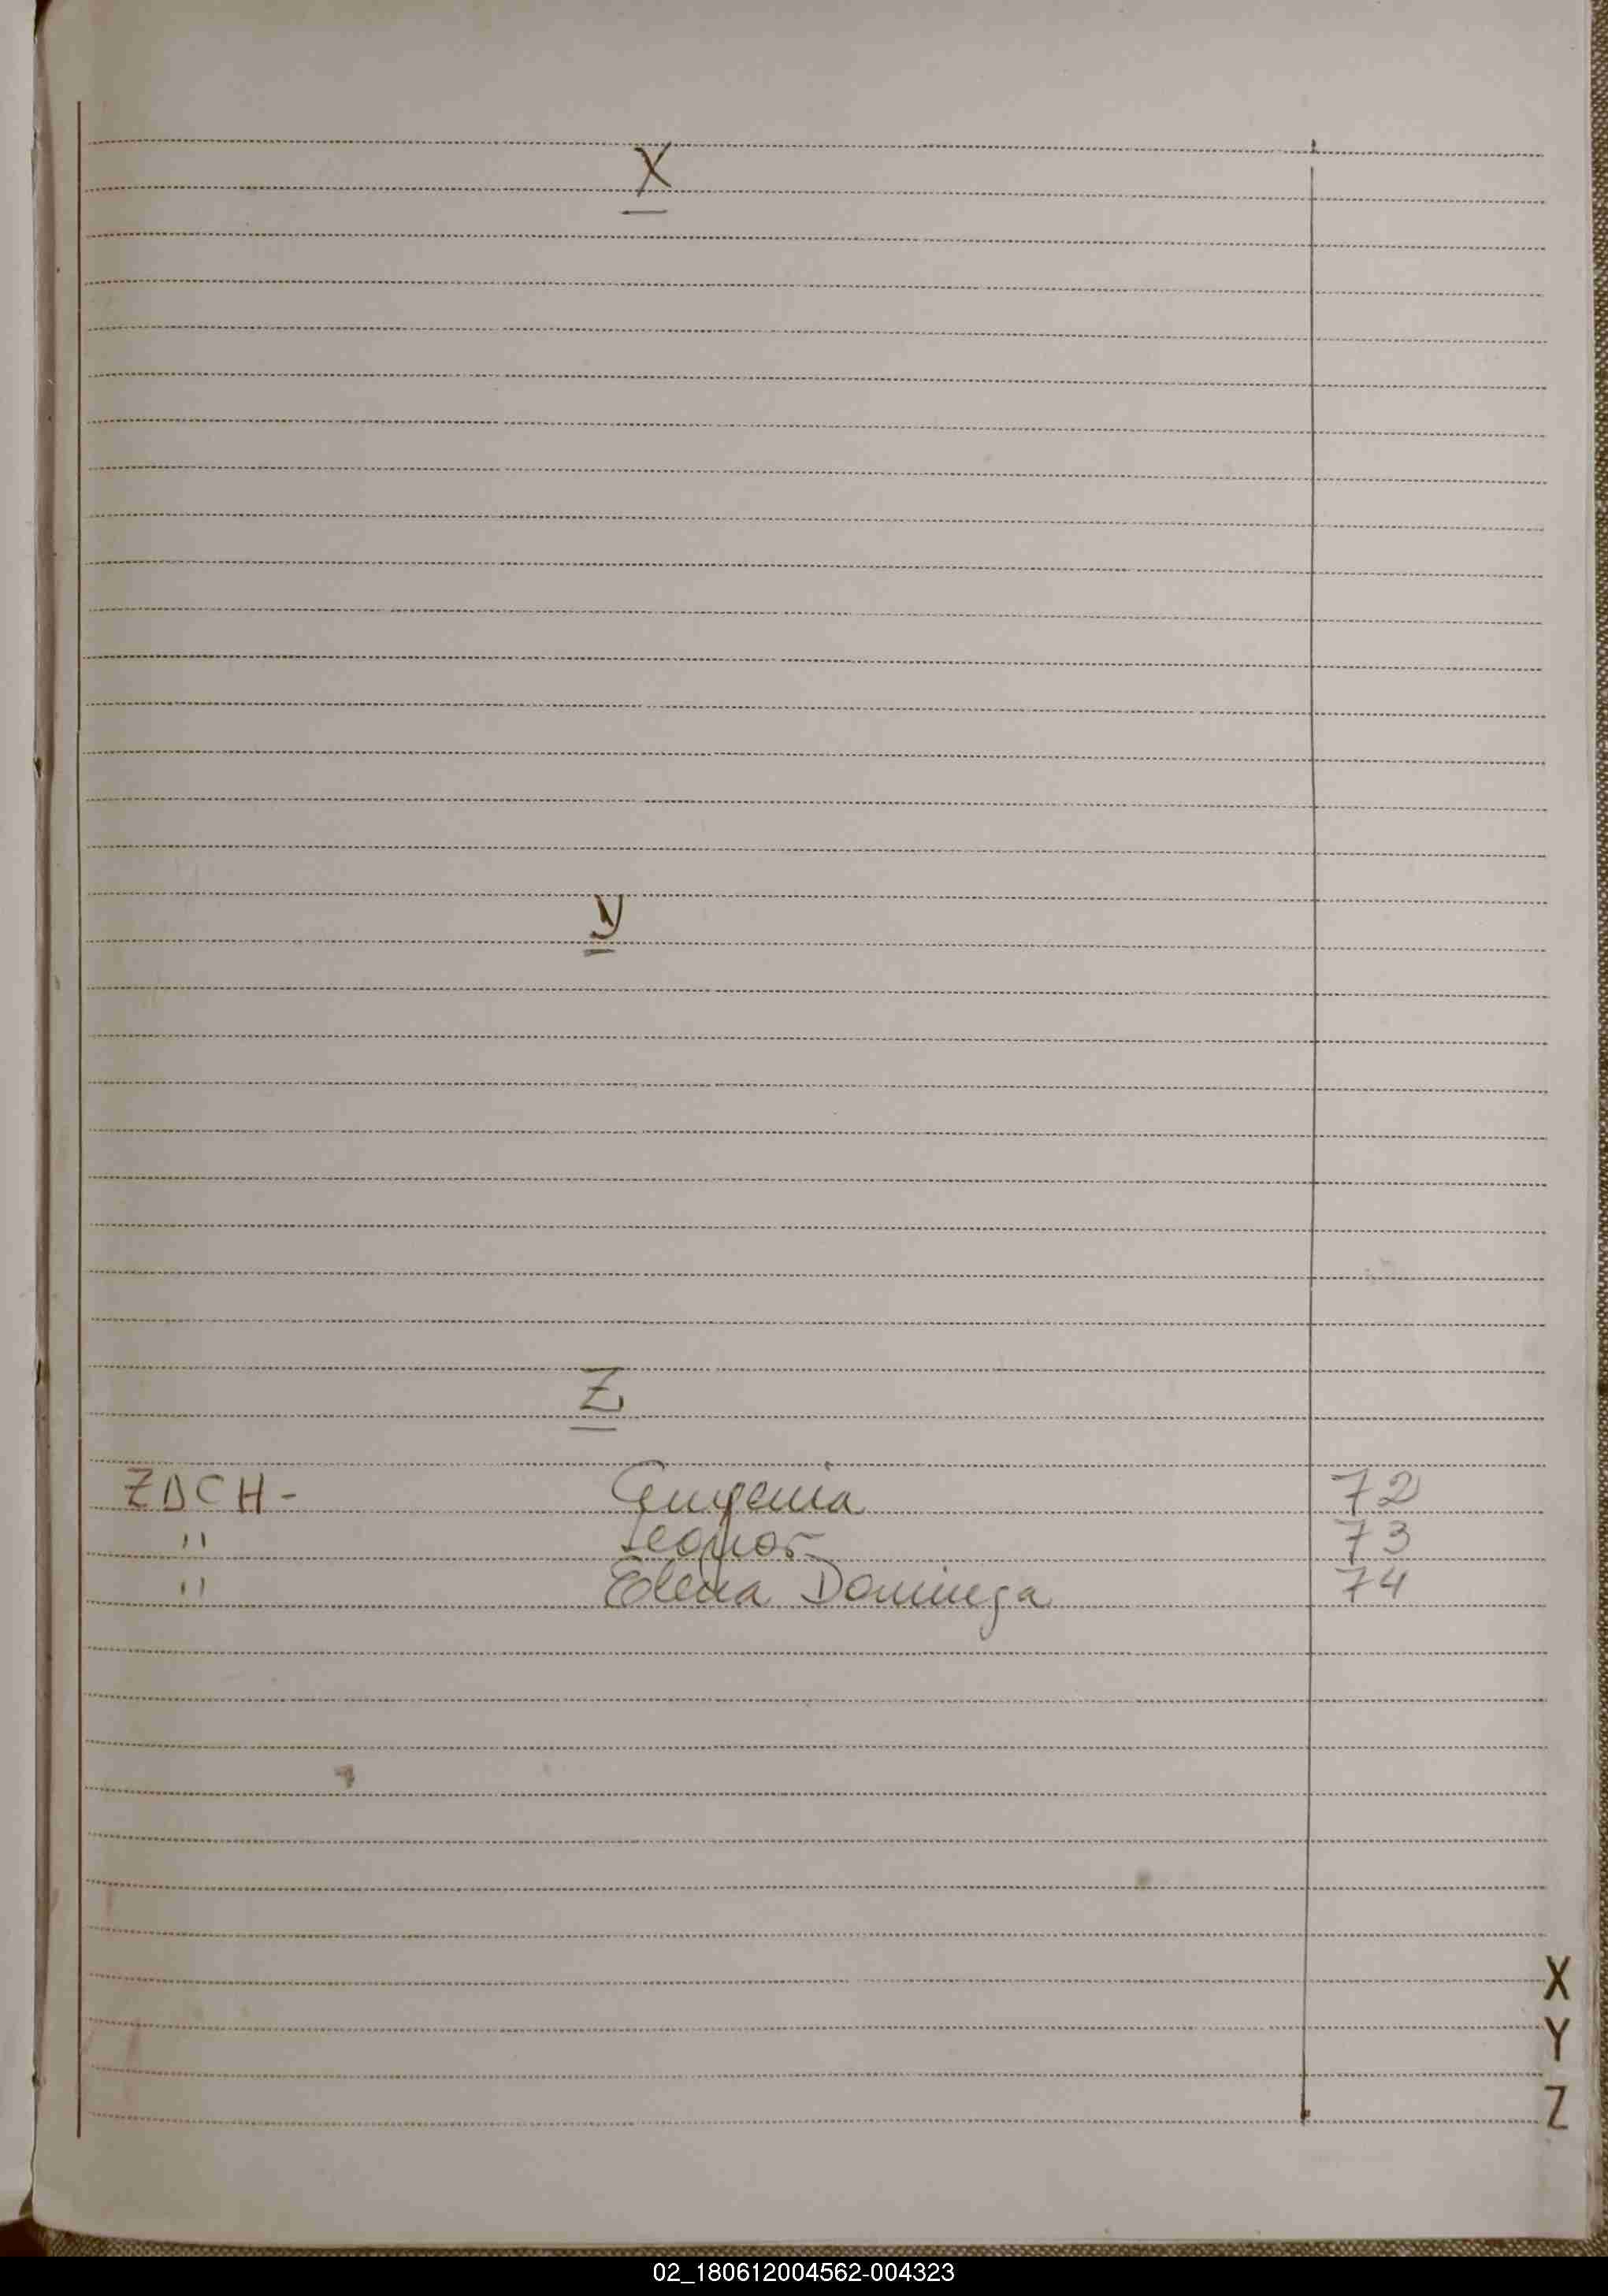 X
Y
Z
ZDCH- Eugenia 72
" Leonor 73
" Elena Dominga 74
X
Y
Z
02_180612004562-004323